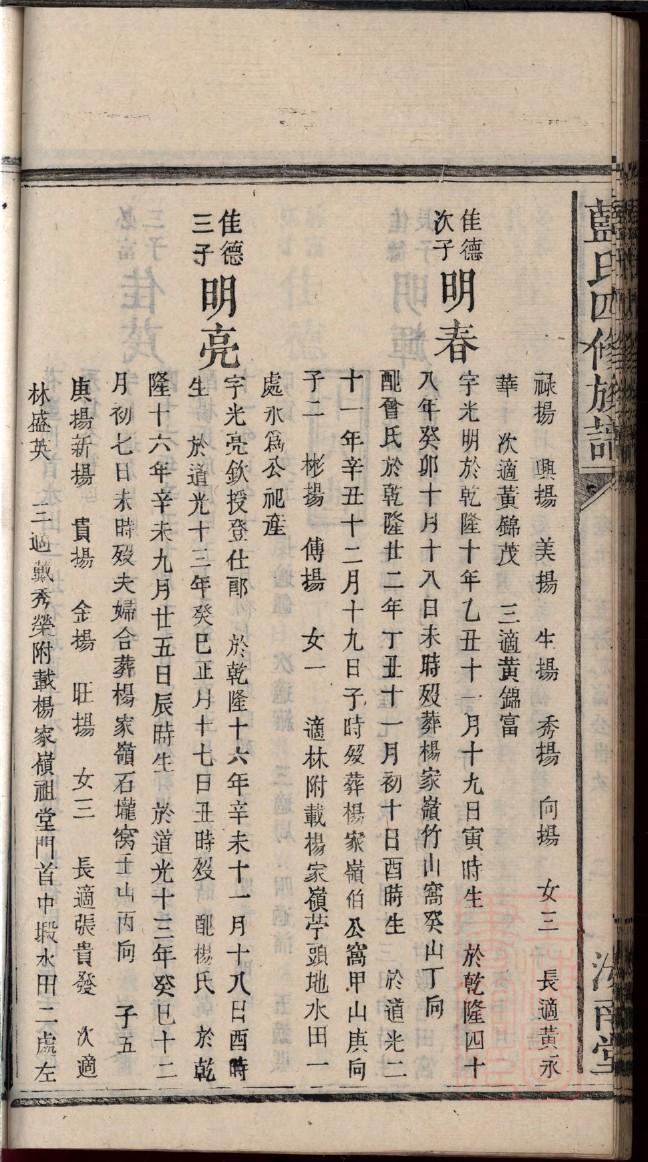 藍氏四修族譜
汝南堂
祿揚 興揚 美揚 生揚 秀揚 向揚 女三 長適黃永
華 次適黃錦茂 三適黃錦富
佳德
次子
明春
字光明於乾隆十年乙丑十一月十九日寅時生 於乾隆四十
八年癸卯十月十八日未時歿葬楊家嶺竹山窩癸山丁向
配曾氏於乾隆廿二年丁丑十一月初十日酉時生 於道光二
十一年辛丑十二月十九日子時歿葬楊家嶺伯公窩甲山庚向
子二 彬揚 傅揚 女一 適林附載楊家嶺苧頭地水田一
處永爲公祀產
佳德
三子
明亮
字光亮欽授登仕郎 於乾隆十六年辛未十一月十八日酉時
生 於道光十三年癸巳正月十七日丑時歿 配楊氏 於乾
隆十六年辛未九月廿五日辰時生 於道光十三年癸巳十二
月初七日未時歿夫婦合葬楊家嶺石壠窩壬山丙向 子五
庚揚新揚 貴揚 金揚 旺揚 女三 長適張貴發 次適
林盛英 三適戴秀榮附載楊家嶺祖堂門首中塅水田二處左